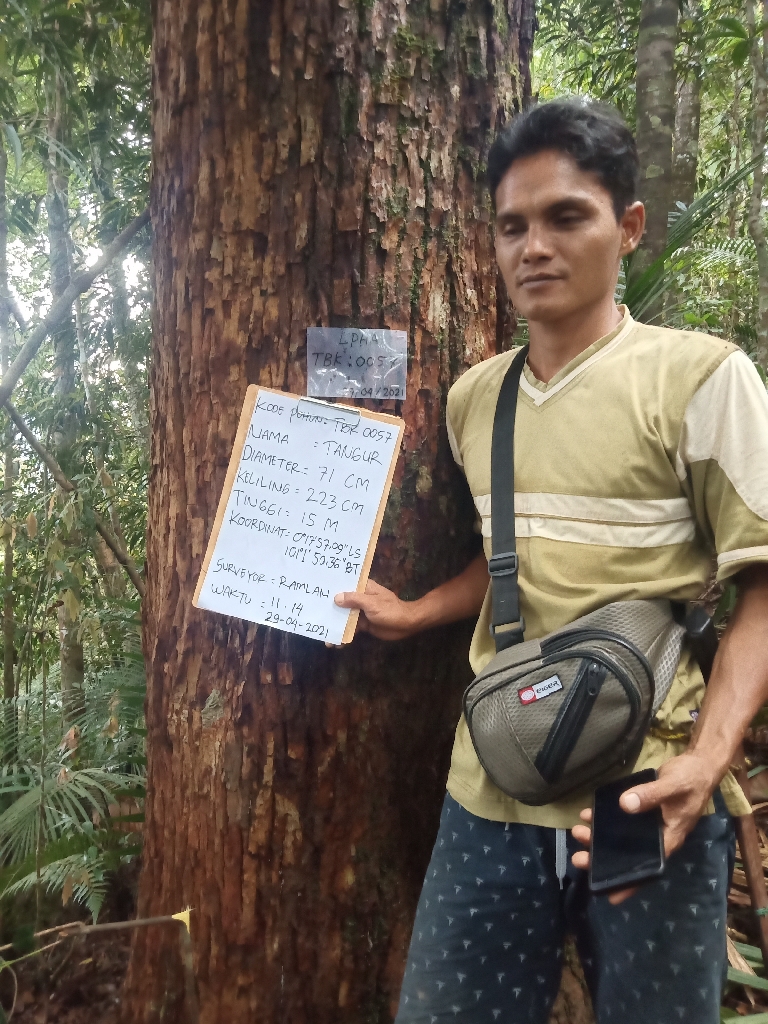 LPHA
TBK: 0057
29/04/2021
KODE POHON: TBK 0057
NAMA : TANGUR
DIAMETER = 71 CM
KELILING = 223 CM
TINGGI = 15 M
KOORDINAT = 0°17'57.09" LS
101°1' 50,36" BT
SURVEYOR = RAMLAN
WAKTU = 11.14
29-04-2021
EIGER